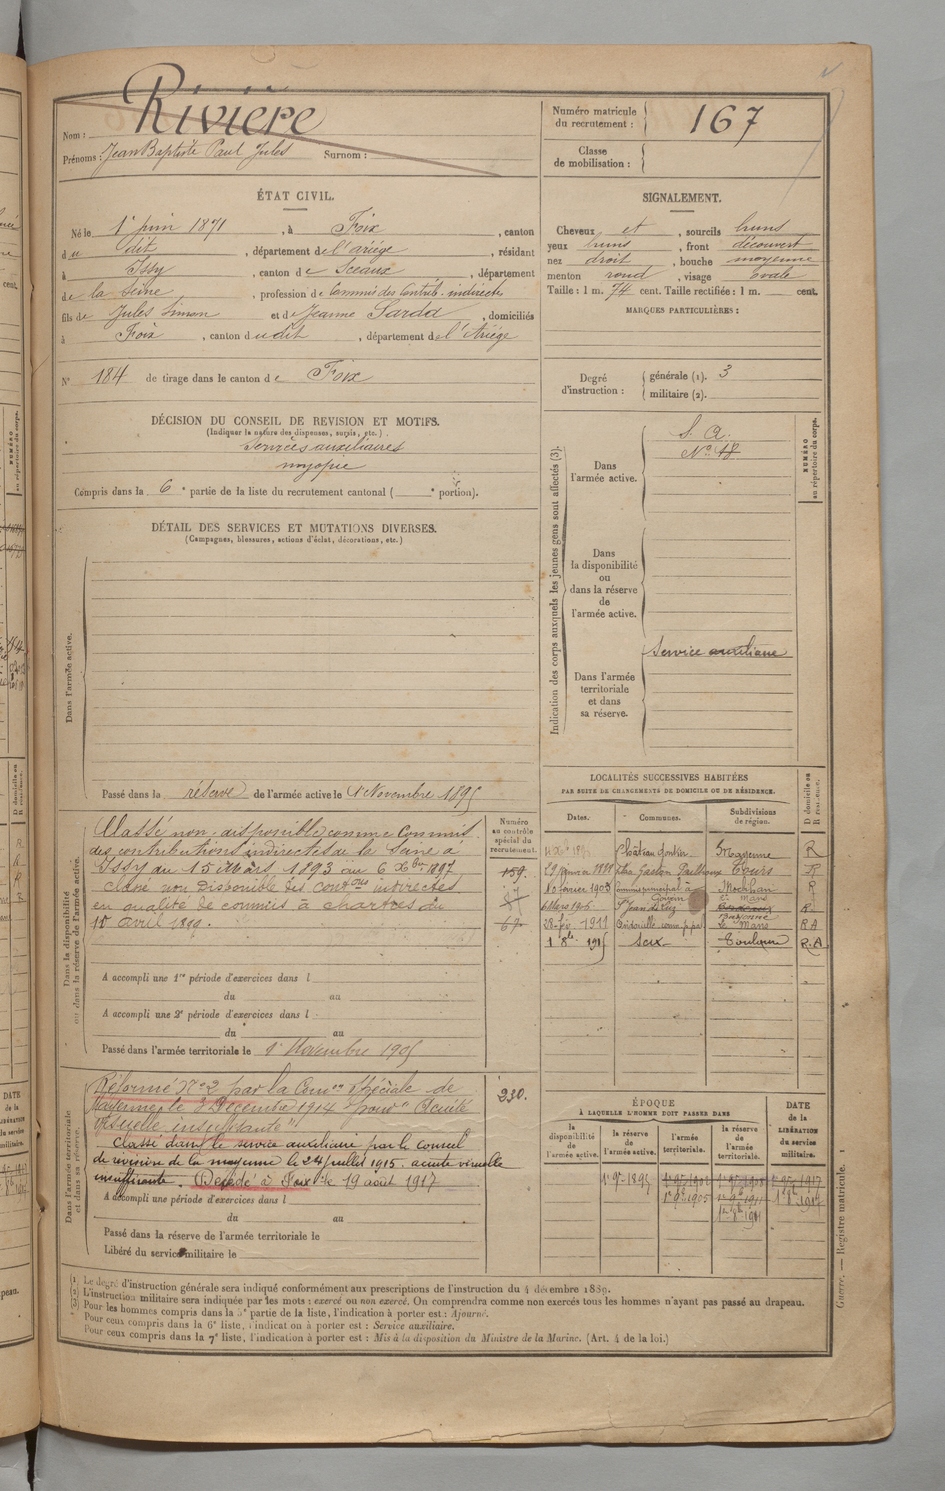 Rivière
Nom :
Prénoms : Jean Baptiste Paul Jules Surnom :
Numéro matricule du recrutement : 167
Classe de mobilisation :
ÉTAT CIVIL.
Né le 1er juin 1871, à Foix, canton
du dit, département de l'ariége, résidant
à Issy, canton de Sceaux, département
de la Seine, profession de Commis des Contrib. indirectes
fils de Jules Simon et de Jeanne Sarda, domiciliés
à Foix, canton dudit, département de l'Ariége
N° 184 de tirage dans le canton de Foix
SIGNALEMENT.
Cheveux et, sourcils bruns
yeux bruns, front découvert
nez droit, bouche moyenne
menton rond, visage Ovale
Taille : 1 m. 74 cent. Taille rectifiée : 1 m. cent.
MARQUES PARTICULIÈRES :
Degré d'instruction : générale (1). 3
militaire (2).
DÉCISION DU CONSEIL DE REVISION ET MOTIFS.
(Indiquer la nature des dispenses, sursis, etc.)
Services auxiliaires
myopie
Compris dans la 6e partie de la liste du recrutement cantonal ( e portion).
DÉTAIL DES SERVICES ET MUTATIONS DIVERSES.
(Campagnes, blessures, actions d'éclat, décorations, etc.)
Dans l'armée active.
Passé dans la réserve de l'armée active le 1er Novembre 1895
Indication des corps auxquels les jeunes gens sont affectés (3).
NUMÉRO au répertoire du corps.
Dans l'armée active.
S. A.
N° 18
Dans la disponibilité ou dans la réserve de l'armée active.
Dans l'armée territoriale et dans sa réserve.
Service auxiliaire
Dans la disponibilité ou dans la réserve de l'armée active.
Classé non-disponible comme Commis
des contributions indirectes de la Seine à
Issy du 15 Mars 1893 au 6 Xbre 1897
Classé non Disponible des Contons indirectes
en qualité de commis à chartres du
1er avril 1899.
Numéro au contrôle spécial du recrutement.
159.
87
67
A accompli une 1re période d'exercices dans l
du au
A accompli une 2e période d'exercices dans l
du au
Passé dans l'armée territoriale le 1er Novembre 1905
LOCALITÉS SUCCESSIVES HABITÉES
PAR SUITE DE CHANGEMENTS DE DOMICILE OU DE RÉSIDENCE.
Dates. Communes. Subdivisions de région. D domicile ou R résidence.
Château Gontier Mayenne R
Tours R
10 février 1903 Commis principal à Gourin Morbihan R
6 Mars 1906 St Jean de Luz Bayonne R
28 1911 le Mans R A
1 8bre 1915 Foix Toulouse R. A
Dans l'armée territoriale et dans sa réserve.
Réformé N° 2 par la Comon Spéciale de
Mayenne, le 3 Décembre 1914 pour "Acuité
visuelle insuffisante"
classé dans le service auxiliaire par le conseil
de révision de la mayenne le 24 juillet 1915. acuité visuelle
insuffisante. Décédé à Foix le 19 août 1917
230.
A accompli une période d'exercices dans l
du au
Passé dans la réserve de l'armée territoriale le
Libéré du service militaire le
ÉPOQUE
À LAQUELLE L'HOMME DOIT PASSER DANS
la disponibilité de l'armée active. la réserve de l'armée active. l'armée territoriale. la réserve de l'armée territoriale. DATE de la LIBÉRATION du service militaire.
1er 9bre 1895
1er 9bre 1905 1er 9bre 1911
(1) Le degré d'instruction générale sera indiqué conformément aux prescriptions de l'instruction du 4 décembre 1889.
(2) L'instruction militaire sera indiquée par les mots : exercé ou non exercé. On comprendra comme non exercés tous les hommes n'ayant pas passé au drapeau.
(3) Pour les hommes compris dans la 5e partie de la liste, l'indication à porter est : Ajourné.
Pour ceux compris dans la 6e liste, l'indication à porter est : Service auxiliaire.
Pour ceux compris dans la 7e liste, l'indication à porter est : Mis à la disposition du Ministre de la Marine. (Art. 4 de la loi.)
Guerre. — Registre matricule. 1